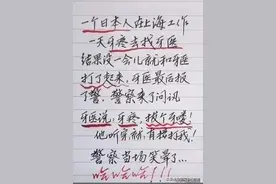 一个日本人在上海工作
一天牙疼去找牙医
结果没一会儿就和牙医
打了起来，牙医最后报
了警，警察来了问讯
牙医说：牙疼，拔个牙喽！
他听穿就直接打我！
警察当场笑晕了…
哈哈哈!!!